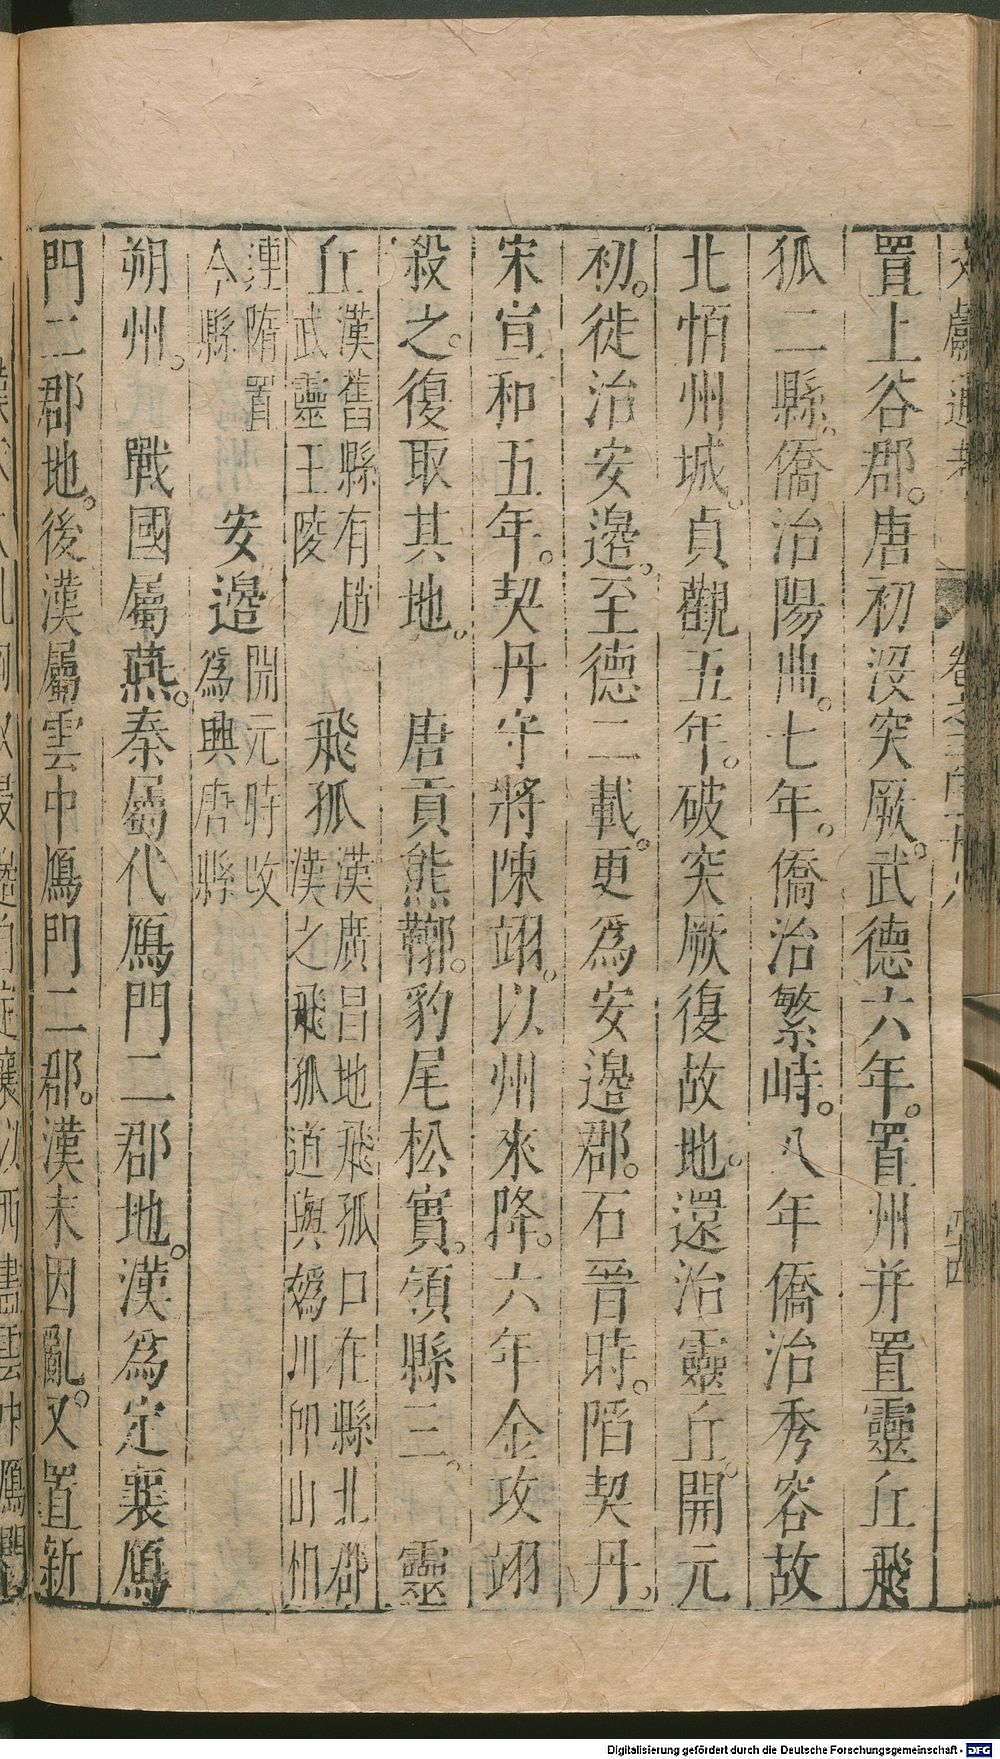 置上谷郡。唐初沒突厥。武德六年。置州并置靈丘飛
狐二縣。僑治陽曲。七年。僑治繁峙。八年僑治秀容故
北恒州城。貞觀五年。破突厥復故地。還治靈丘。開元
初。徙治安邊。至德二載。更為安邊郡。石晉時。陷契丹。
宋宣和五年。契丹守將陳翊。以州來降。六年金攻翊
殺之。復取其地。 唐貢熊鞹。豹尾松實。領縣三。 靈
丘 漢舊縣有趙
武靈王陵 飛狐 漢廣昌地飛狐口在縣北郡
漢之飛狐道與媯川卽山相
連隋置
今縣 安邊 開元時收
為興唐縣
朔州。 戰國屬燕。秦屬代鴈門二郡地。漢為定襄鴈
門二郡地。後漢屬雲中鴈門二郡。漢末因亂。又置新
Digitalisierung gefördert durch die Deutsche Forschungsgemeinschaft - DFG